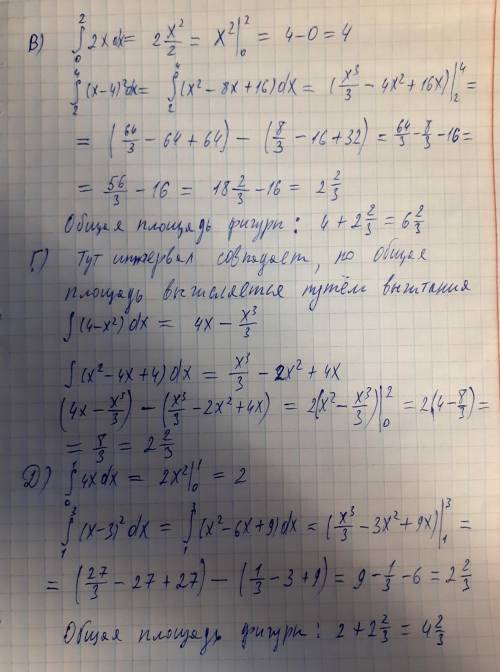 В) ∫₀² 2x dx = 2 x²/2 = x² |₀² = 4 – 0 = 4
∫₂⁴ (x-4)² dx = ∫₂⁴ (x² – 8x + 16) dx = (x³/3 – 4x² + 16x) |₂⁴ =
= (64/3 – 64 + 64) – (8/3 – 16 + 32) = 64/3 – 8/3 – 16 =
= 56/3 – 16 = 18 2/3 – 16 = 2 2/3
Общая площадь фигуры: 4 + 2 2/3 = 6 2/3
Г) Тут интервал совпадает, но общая
площадь вычисляется путём вычитания
∫(4-x²) dx = 4x – x³/3
∫(x² – 4x + 4) dx = x³/3 – 2x² + 4x
(4x – x³/3) – (x³/3 – 2x² + 4x) = 2(x² – x³/3) |₀² = 2(4 – 8/3) =
= 8/3 = 2 2/3
Д) ∫₀¹ 4x dx = 2x² |₀¹ = 2
∫₁³ (x-3)² dx = ∫₁³ (x² – 6x + 9) dx = (x³/3 – 3x² + 9x) |₁³ =
= (27/3 – 27 + 27) – (1/3 – 3 + 9) = 9 – 1/3 – 6 = 2 2/3
Общая площадь фигуры: 2 + 2 2/3 = 4 2/3